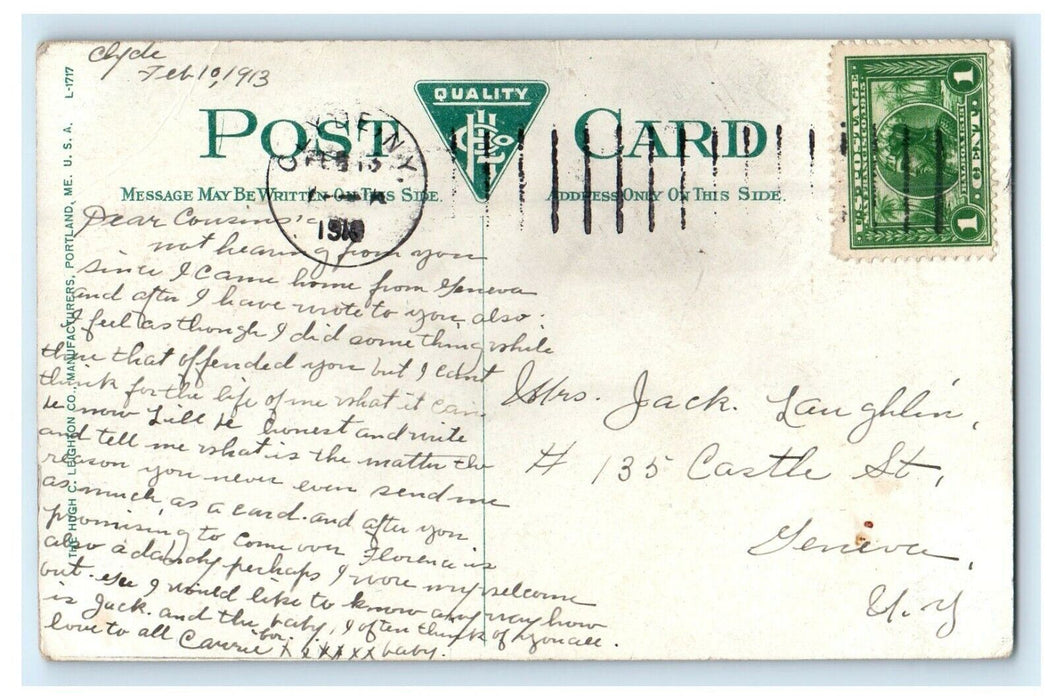 Clyde
Feb 10, 1913
QUALITY
POST CARD
MESSAGE MAY BE WRITTEN ON THIS SIDE.
ADDRESS ONLY ON THIS SIDE.
CLYDE N.Y.
FEB 13
1913
1 CENT 1
Dear Cousins
not hearing from you
since I came home from Geneva
and after I have wrote to you also.
I feel as though I did something while
there that offended you but I cant
think for the life of me what it can
be now Lill be honest and write
and tell me what is the matter the
reason you never even send me
as much as a card. and after you
promising to come over Florence is
also a dandy perhaps I wore my welcome
out. I would like to know any way how
is Jack. and the baby, I often think of you all.
love to all Carrie xxxxxx baby.
Mrs. Jack. Laughlin,
# 135 Castle St,
Geneva,
N. Y
THE HUGH C. LEIGHTON CO., MANUFACTURERS, PORTLAND, ME. U. S. A. L-1717